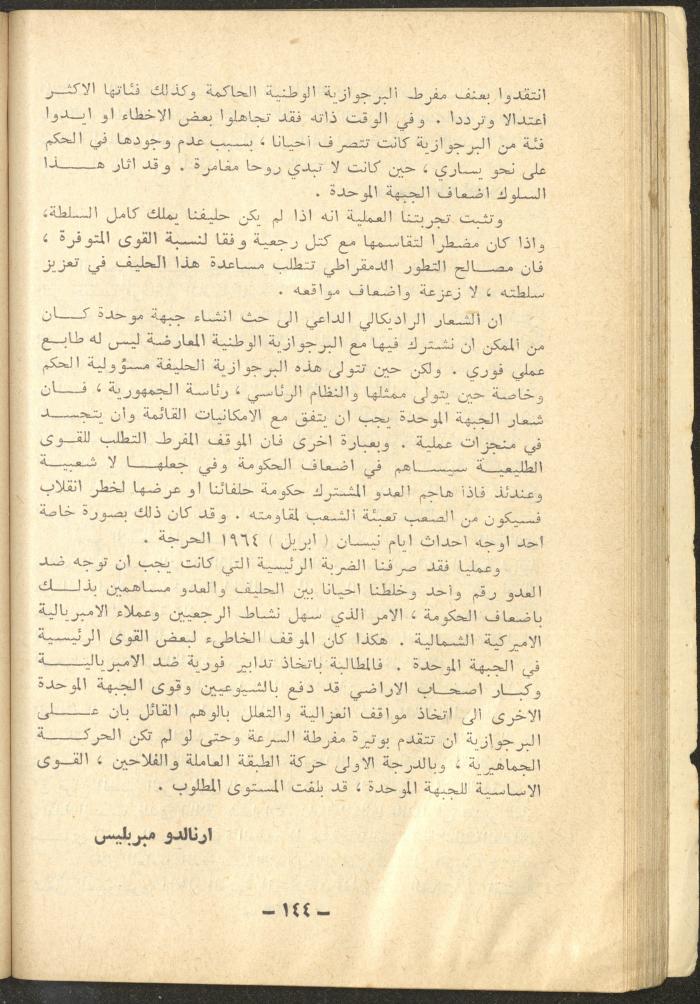 انتقدوا بعنف مفرط البرجوازية الوطنية الحاكمة وكذلك فئاتها الاكثر
اعتدالا وترددا . وفي الوقت ذاته فقد تجاهلوا بعض الاخطاء او ايدوا
فئة من البرجوازية كانت تتصرف أحيانا ، بسبب عدم وجودها في الحكم
على نحو يساري ، حين كانت لا تبدي روحا مغامرة . وقد اثار هذا
السلوك اضعاف الجبهة الموحدة .
وتثبت تجربتنا العملية انه اذا لم يكن حليفنا يملك كامل السلطة،
واذا كان مضطرا لتقاسمها مع كتل رجعية وفقا لنسبة القوى المتوفرة ،
فان مصالح التطور الدمقراطي تتطلب مساعدة هذا الحليف في تعزيز
سلطته ، لا زعزعة واضعاف مواقعه .
ان الشعار الراديكالي الداعي الى حث انشاء جبهة موحدة كان
من الممكن ان نشترك فيها مع البرجوازية الوطنية المعارضة ليس له طابع
عملي فوري . ولكن حين تتولى هذه البرجوازية الحليفة مسؤولية الحكم
وخاصة حين يتولى ممثلها والنظام الرئاسي ، رئاسة الجمهورية ، فان
شعار الجبهة الموحدة يجب ان يتفق مع الامكانيات القائمة وان يتجسد
في منجزات عملية . وبعبارة اخرى فان الموقف المفرط التطلب للقوى
الطليعية سيساهم في اضعاف الحكومة وفي جعلها لا شعبية
وعندئذ فاذا هاجم العدو المشترك حكومة حلفائنا او عرضها لخطر انقلاب
فسيكون من الصعب تعبئة الشعب لمقاومته . وقد كان ذلك بصورة خاصة
احد اوجه احداث ايام نيسان ( ابريل ) ١٩٦٤ الحرجة .
وعمليا فقد صرفنا الضربة الرئيسية التي كانت يجب ان توجه ضد
العدو رقم واحد وخلطنا احيانا بين الحليف والعدو مساهمين بذلك
باضعاف الحكومة ، الامر الذي سهل نشاط الرجعيين وعملاء الامبريالية
الاميركية الشمالية . هكذا كان الموقف الخاطىء لبعض القوى الرئيسية
في الجبهة الموحدة . فالمطالبة باتخاذ تدابير فورية ضد الامبريالية
وكبار اصحاب الاراضي قد دفع بالشيوعيين وقوى الجبهة الموحدة
الاخرى الى اتخاذ مواقف انعزالية والتعلل بالوهم القائل بان على
البرجوازية ان تتقدم بوتيرة مفرطة السرعة وحتى لو لم تكن الحركة
الجماهيرية ، وبالدرجة الاولى حركة الطبقة العاملة والفلاحين ، القوى
الاساسية للجبهة الموحدة ، قد بلغت المستوى المطلوب .
ارنالدو مبريليس
– ١٤٤ –